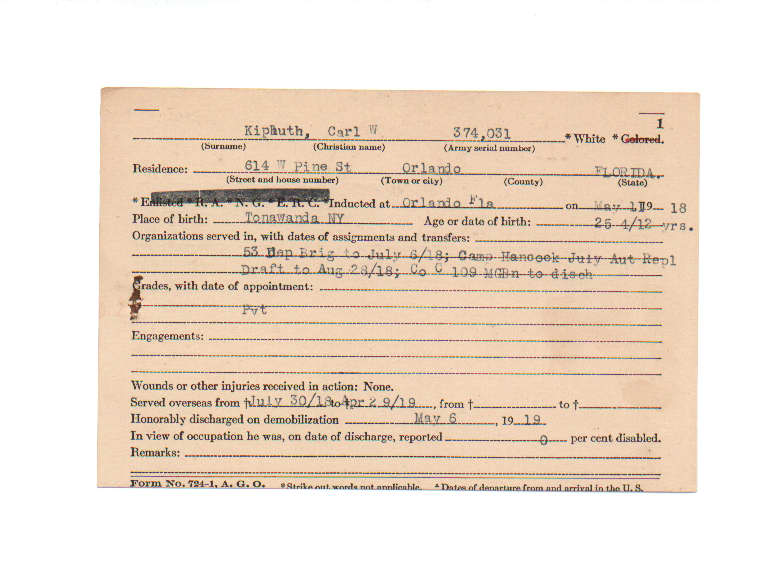 1
Kiphuth, Carl W 374,031 * White * Colored.
(Surname) (Christian name) (Army serial number)
Residence: 614 W Pine St Orlando FLORIDA.
(Street and house number) (Town or city) (County) (State)
* Enlisted * R. A. * N. G. * E. R. C. *Inducted at Orlando Fla on May 1 19 18
Place of birth: Tonawanda NY Age or date of birth: 25 4/12 yrs.
Organizations served in, with dates of assignments and transfers:
53 Dep Brig to July 6/18; Camp Hancock July Aut Repl
Draft to Aug 28/18; Co C 109 MGBn to disch
Grades, with date of appointment:
Pvt
Engagements:
Wounds or other injuries received in action: None.
Served overseas from † July 30/18 to † Apr 29/19, from † to †
Honorably discharged on demobilization May 6, 19 19
In view of occupation he was, on date of discharge, reported 0 per cent disabled.
Remarks:
Form No. 724-1, A. G. O. * Strike out words not applicable. † Dates of departure from and arrival in the U. S.